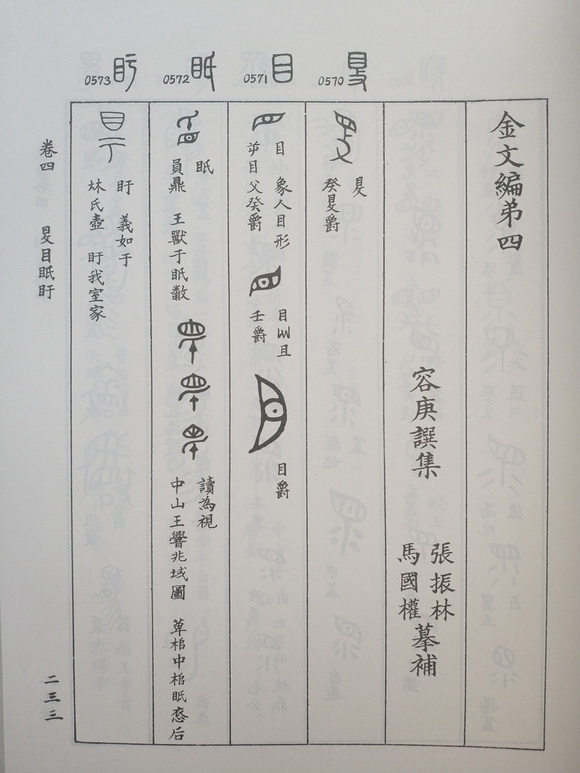 金文編第四
容庚譔集
張振林
馬國權
摹補
0570
𥄎
癸𥄎爵
0571 目
目 象人目形
目父癸爵
目 且
壬爵
目爵
0572 眂
眂
員鼎 王獸于眂
讀為視
中山王 兆域圖 萆棺中棺眂㤅后
0573 盱
盱 義如于
杕氏壺 盱我室家
卷四 𥄎目眂盱
二三三